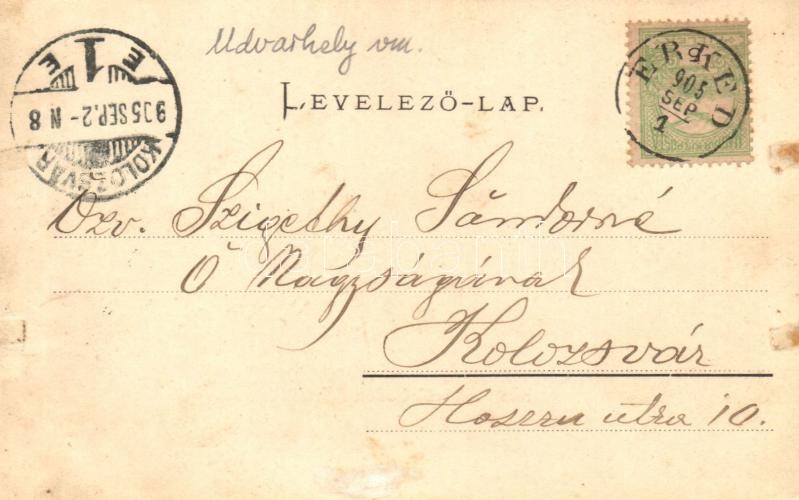 Udvarhely vm.
LEVELEZŐ-LAP.
ERKED
905
SEP
1
E 1 E
905 SEP. 2 - N 8
KOLOZSVÁR
Özv. Szigethy Sándorné
Ő Nagyságának
Kolozsvár
Hosszu utza 10.